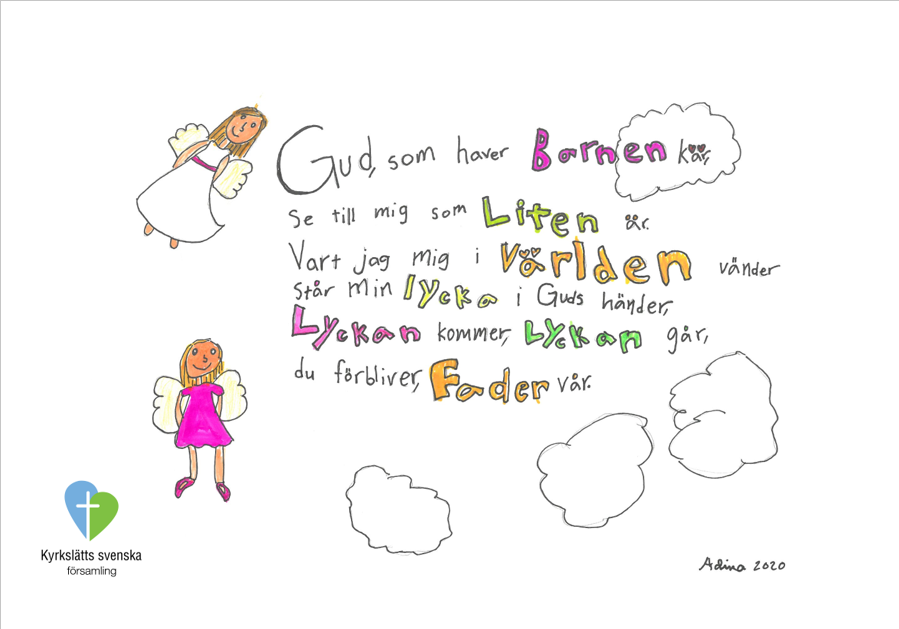 Gud, som haver Barnen kär,
Se till mig som Liten är.
Vart jag mig i Världen vänder
står min lycka i Guds händer,
Lyckan kommer, Lyckan går,
du förbliver, Fader vår.
Kyrkslätts svenska
församling
Adina 2020